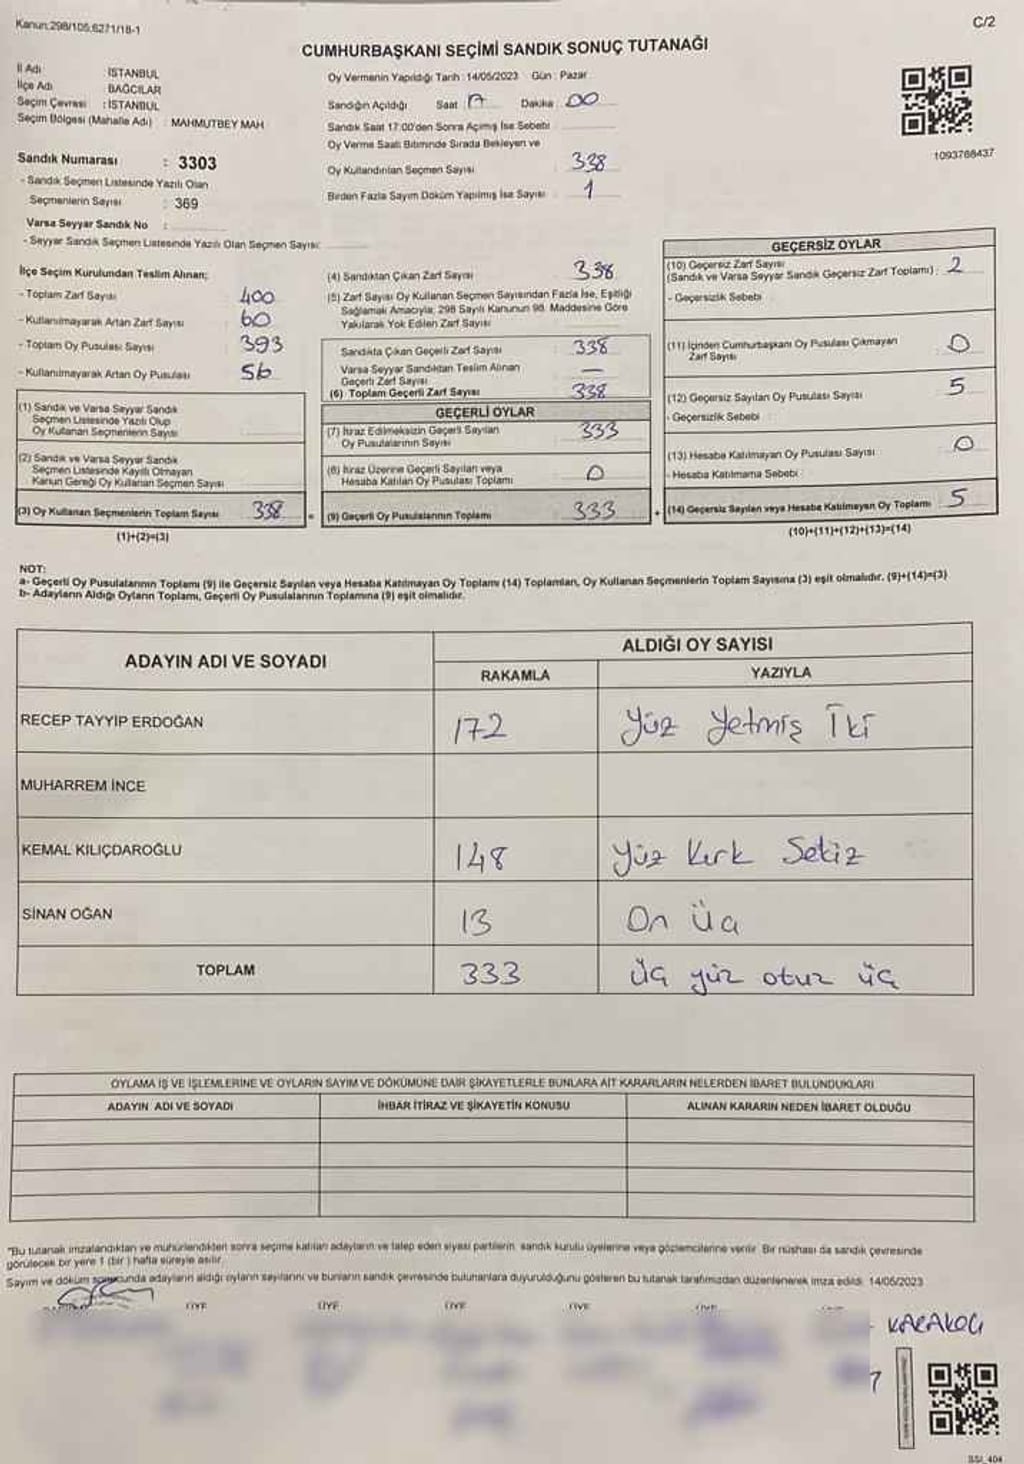 Kanun:298/105;6271/18-1
C/2
CUMHURBAŞKANI SEÇİMİ SANDIK SONUÇ TUTANAĞI
İl Adı : İSTANBUL
İlçe Adı : BAĞCILAR
Seçim Çevresi : İSTANBUL
Seçim Bölgesi (Mahalle Adı) : MAHMUTBEY MAH
Sandık Numarası : 3303
- Sandık Seçmen Listesinde Yazılı Olan
Seçmenlerin Sayısı : 369
Varsa Seyyar Sandık No :
- Seyyar Sandık Seçmen Listesinde Yazılı Olan Seçmen Sayısı:
Oy Vermenin Yapıldığı Tarih : 14/05/2023 Gün : Pazar
Sandığın Açıldığı Saat : 17 Dakika : 00
Sandık Saat 17:00'den Sonra Açımış İse Sebebi :
Oy Verme Saati Bitiminde Sırada Bekleyen ve
Oy Kullandırılan Seçmen Sayısı : 338
Birden Fazla Sayım Döküm Yapılmış İse Sayısı : 1
1093768437
İlçe Seçim Kurulundan Teslim Alınan;
- Toplam Zarf Sayısı : 400
- Kullanılmayarak Artan Zarf Sayısı : 60
- Toplam Oy Pusulası Sayısı : 393
- Kullanılmayarak Artan Oy Pusulası : 56
(1) Sandık ve Varsa Seyyar Sandık
Seçmen Listesinde Yazılı Olup
Oy Kullanan Seçmenlerin Sayısı
(2) Sandık ve Varsa Seyyar Sandık
Seçmen Listesinde Kayıtlı Olmayan
Kanun Gereği Oy Kullanan Seçmen Sayısı
(3) Oy Kullanan Seçmenlerin Toplam Sayısı 338
(1)+(2)=(3)
(4) Sandıktan Çıkan Zarf Sayısı : 338
(5) Zarf Sayısı Oy Kullanan Seçmen Sayısından Fazla İse, Eşitliği
Sağlamak Amacıyla; 298 Sayılı Kanunun 98. Maddesine Göre
Yakılarak Yok Edilen Zarf Sayısı :
Sandıkta Çıkan Geçerli Zarf Sayısı : 338
Varsa Seyyar Sandıktan Teslim Alınan
Geçerli Zarf Sayısı : —
(6) Toplam Geçerli Zarf Sayısı : 338
GEÇERLİ OYLAR
(7) İtiraz Edilmeksizin Geçerli Sayılan
Oy Pusulalarının Sayısı : 333
(8) İtiraz Üzerine Geçerli Sayılan veya
Hesaba Katılan Oy Pusulası Toplamı : 0
= (9) Geçerli Oy Pusulalarının Toplamı : 333
GEÇERSİZ OYLAR
(10) Geçersiz Zarf Sayısı
(Sandık ve Varsa Seyyar Sandık Geçersiz Zarf Toplamı) : 2
- Geçersizlik Sebebi :
(11) İçinden Cumhurbaşkanı Oy Pusulası Çıkmayan
Zarf Sayısı : 0
(12) Geçersiz Sayılan Oy Pusulası Sayısı : 5
- Geçersizlik Sebebi :
(13) Hesaba Katılmayan Oy Pusulası Sayısı : 0
- Hesaba Katılmama Sebebi :
+ (14) Geçersiz Sayılan veya Hesaba Katılmayan Oy Toplamı : 5
(10)+(11)+(12)+(13)=(14)
NOT:
a- Geçerli Oy Pusulalarının Toplamı (9) ile Geçersiz Sayılan veya Hesaba Katılmayan Oy Toplamı (14) Toplamları, Oy Kullanan Seçmenlerin Toplam Sayısına (3) eşit olmalıdır. (9)+(14)=(3)
b- Adayların Aldığı Oyların Toplamı, Geçerli Oy Pusulalarının Toplamına (9) eşit olmalıdır.
ADAYIN ADI VE SOYADI
ALDIĞI OY SAYISI
RAKAMLA YAZIYLA
RECEP TAYYİP ERDOĞAN 172 Yüz Yetmiş İki
MUHARREM İNCE
KEMAL KILIÇDAROĞLU 148 Yüz Kırk Sekiz
SİNAN OĞAN 13 On Üç
TOPLAM 333 Üç yüz otuz üç
OYLAMA İŞ VE İŞLEMLERİNE VE OYLARIN SAYIM VE DÖKÜMÜNE DAİR ŞİKAYETLERLE BUNLARA AİT KARARLARIN NELERDEN İBARET BULUNDUKLARI
ADAYIN ADI VE SOYADI İHBAR İTİRAZ VE ŞİKAYETİN KONUSU ALINAN KARARIN NEDEN İBARET OLDUĞU
"Bu tutanak imzalandıktan ve mühürlendikten sonra seçime katılan adayların ve talep eden siyasi partilerin, sandık kurulu üyelerine veya gözlemcilerine verilir. Bir nüshası da sandık çevresinde
görülecek bir yere 1 (bir ) hafta süreyle asılır.
Sayım ve döküm sonucunda adayların aldığı oyların sayılarını ve bunların sandık çevresinde bulunanlara duyurulduğunu gösteren bu tutanak tarafımızdan düzenlenerek imza edildi. 14/05/2023
ÜYE ÜYE ÜYE ÜYE ÜYE
KARAKOÇ
7
SSI_404